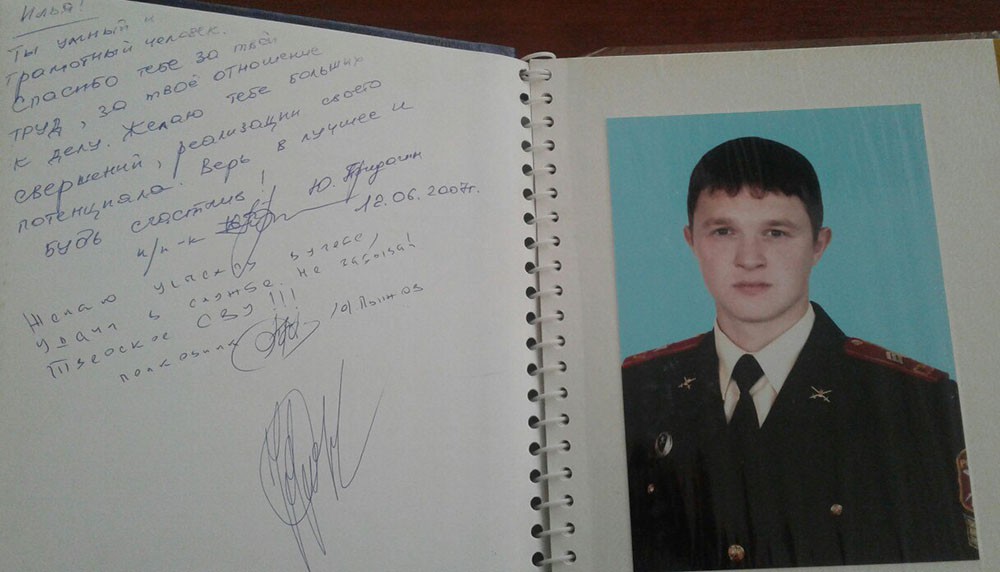 Илья!
Ты умный и
грамотный человек.
Спасибо тебе за твой
труд, за твоё отношение
к делу. Желаю тебе больших
свершений, реализации своего
потенциала. Верь в лучшее и
будь счастлив!
п/п-к Ю. Придагин
12.06.2007г.
Желаю успехов в учебе,
удачи в службе. Не забывай
Тверское СВУ!!!
полковник